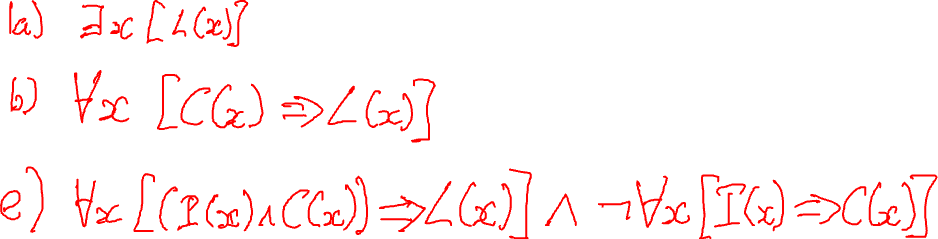 (a) ∃x [L(x)]
b) ∀x [C(x) ⇒ L(x)]
e) ∀x [(I(x) ∧ C(x)) ⇒ L(x)] ∧ ¬∀x [I(x) ⇒ C(x)]